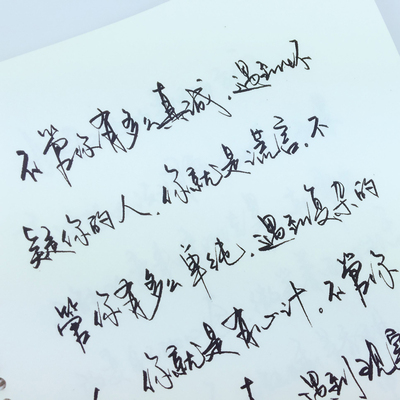 不管你有多么真诚,遇到怀
疑你的人,你就是谎言,不
管你有多么单纯,遇到复杂的
人,你就是有心计。不管你
遇到